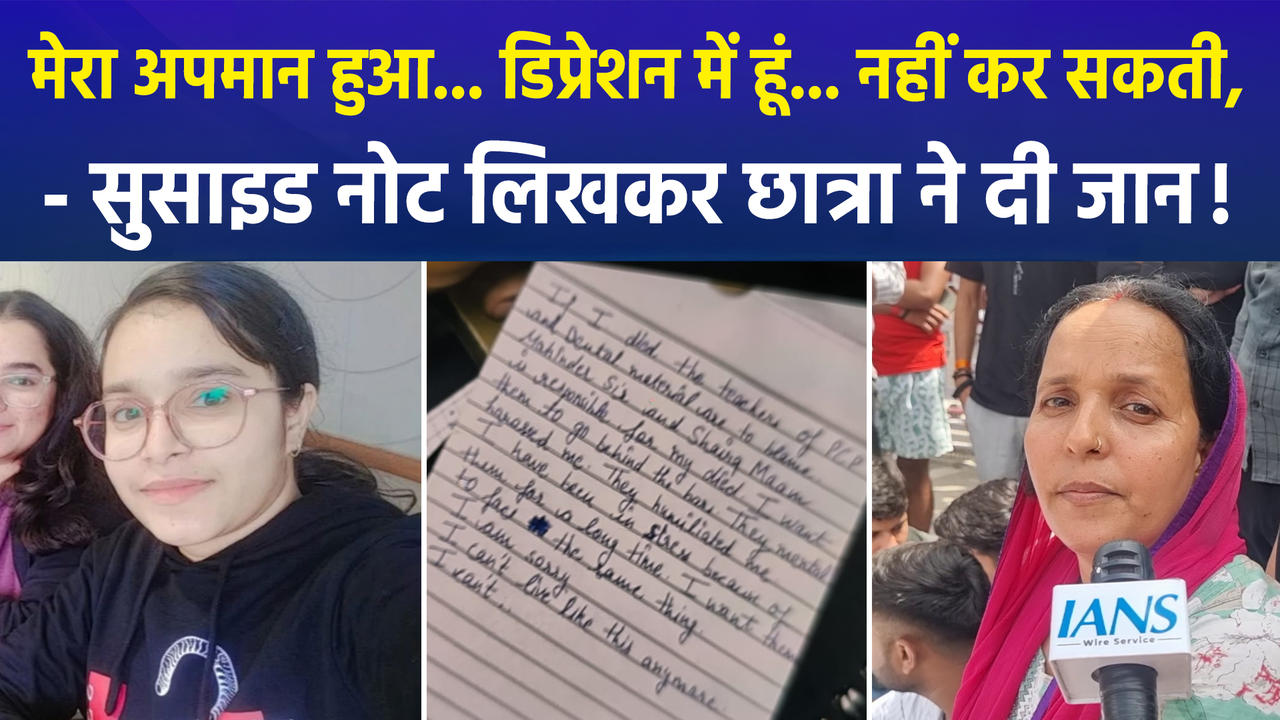 मेरा अपमान हुआ... डिप्रेशन में हूं... नहीं कर सकती,
- सुसाइड नोट लिखकर छात्रा ने दी जान!
If I died the teachers of PCP
and Dental material are to blame.
Mahinder Sir and Shairg Maam
is responsible for my died. I want
them to go behind the bars. They mental
harassed me. They humiliated me.
I have been in stress because of
them for a long time. I want them
to face the same thing.
I am sorry
I can't live like this anymore.
I can't..
IANS
Wire Service